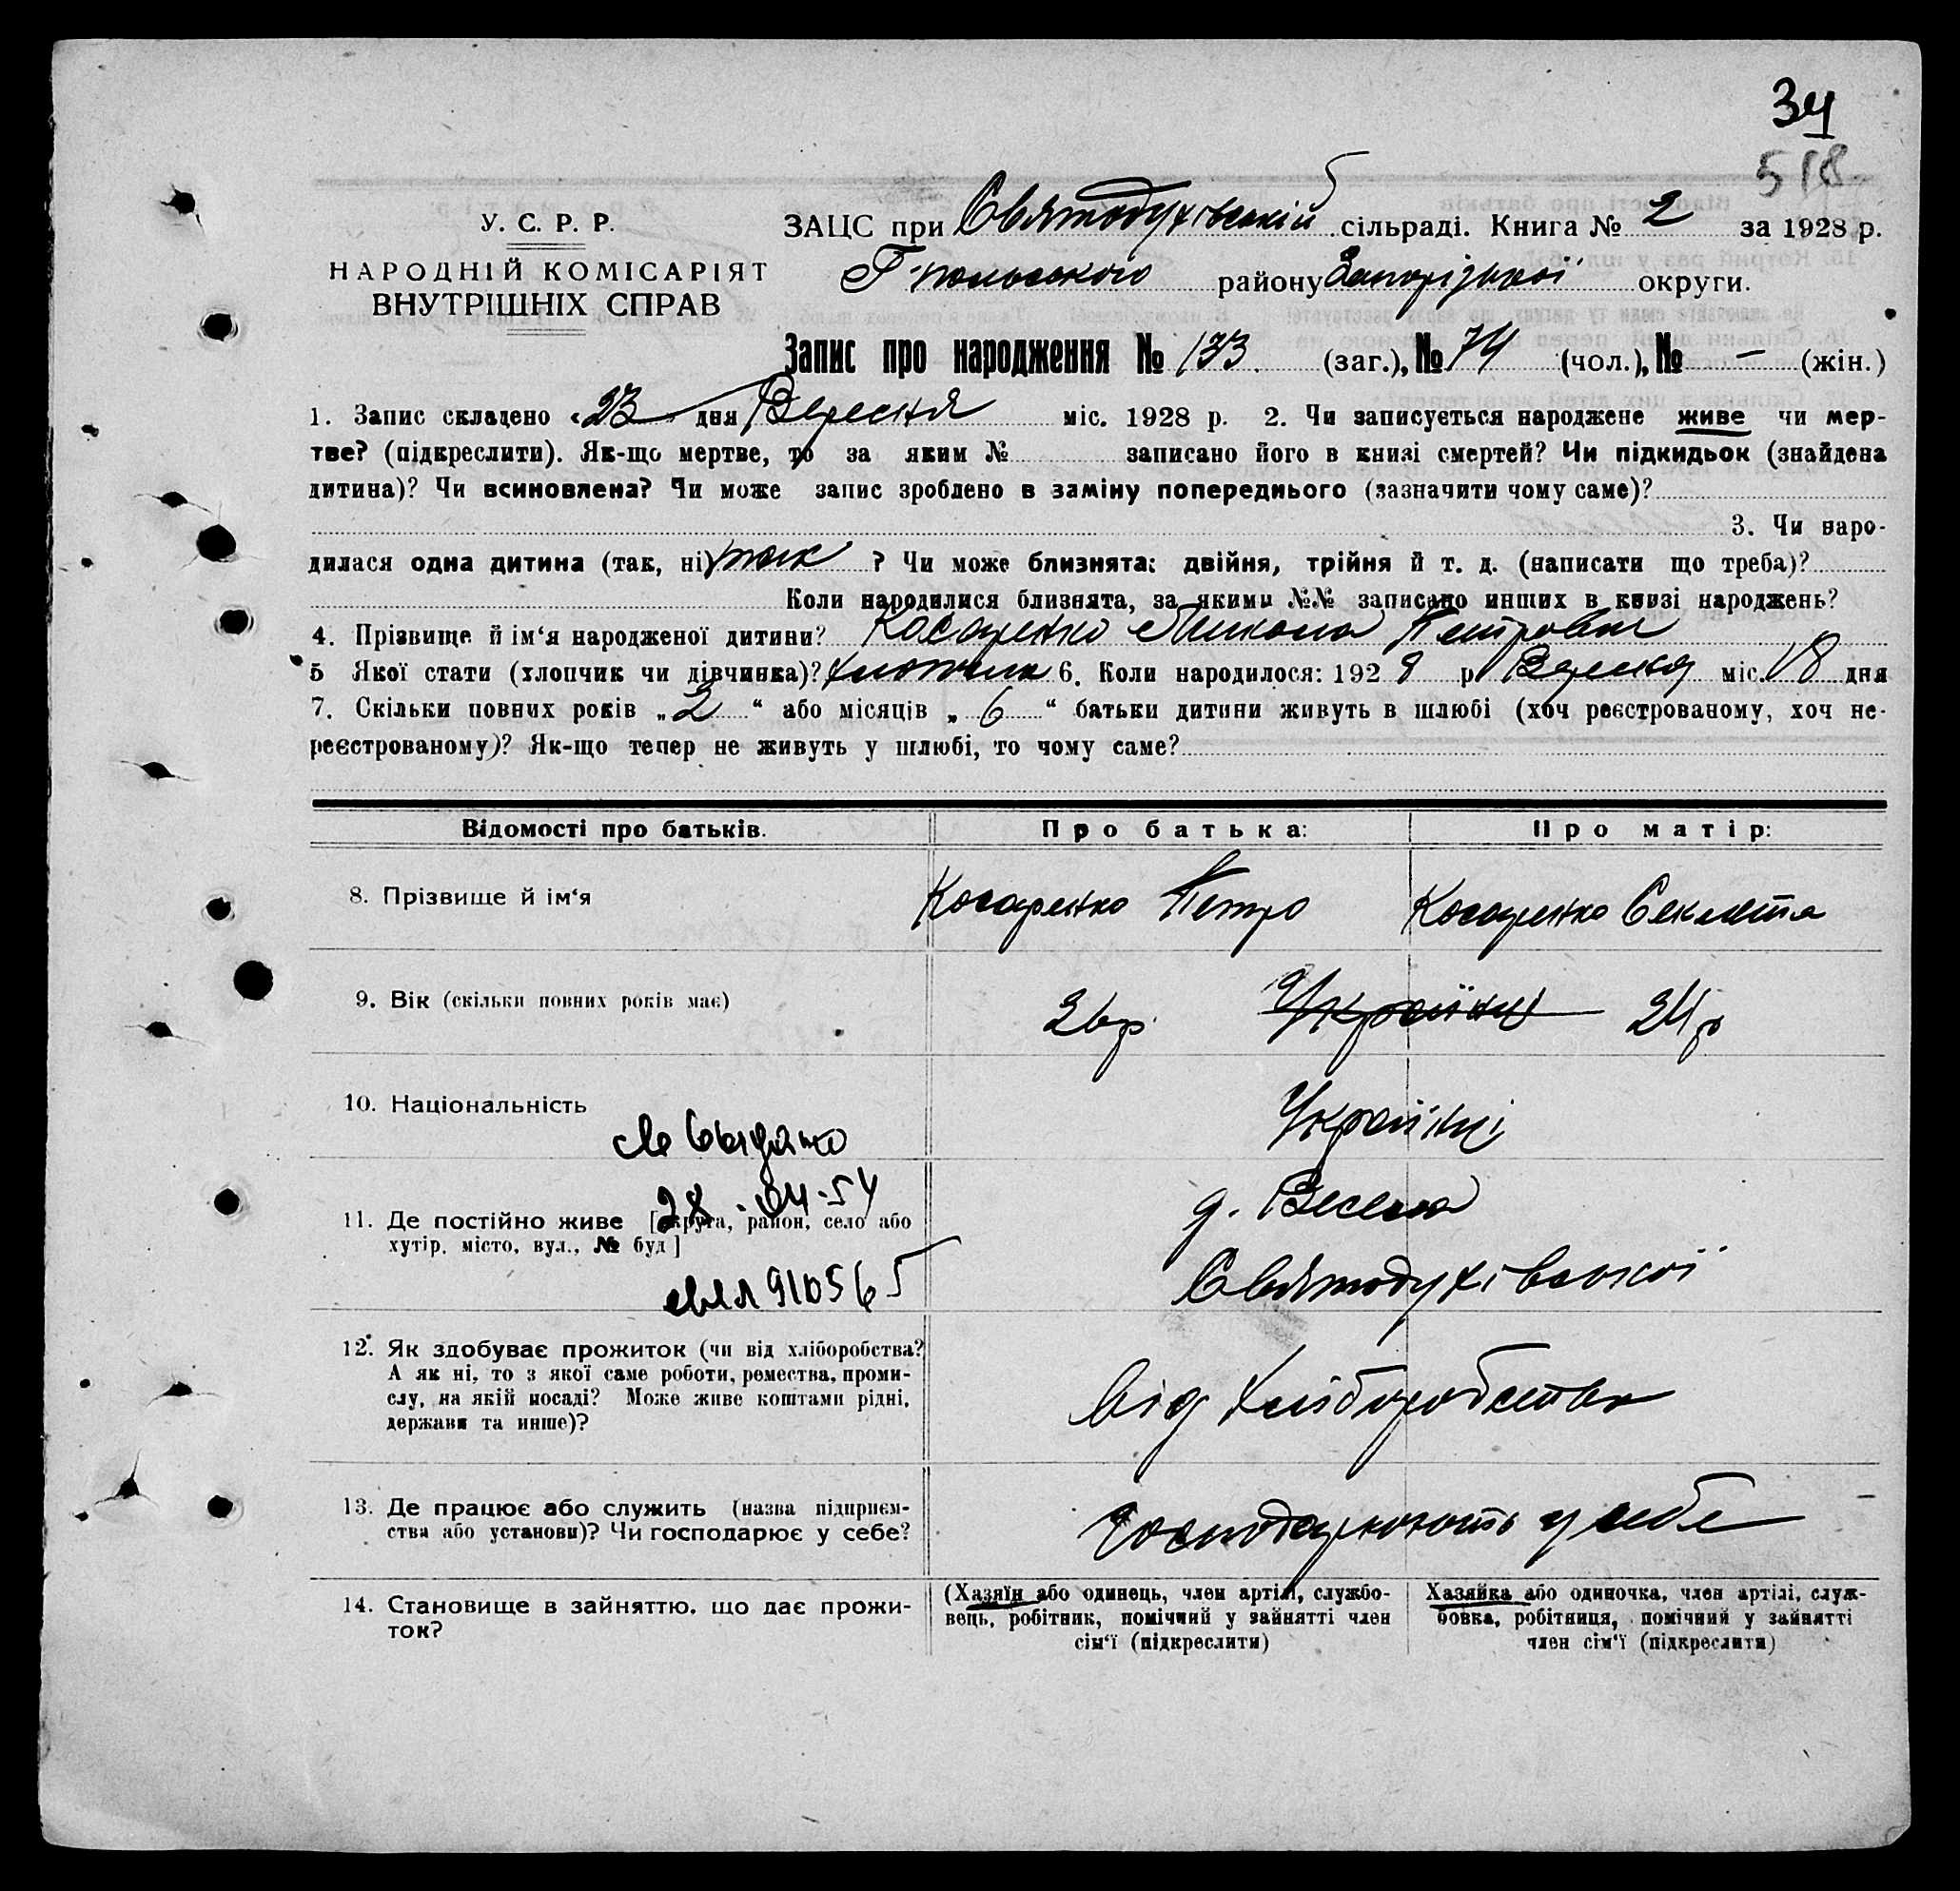 34
518
У. С. Р. Р.
НАРОДНІЙ КОМІСАРІЯТ
ВНУТРІШНІХ СПРАВ
ЗАЦС при Святодухівській сільраді. Книга № 2 за 1928 р.
Г-польского району Запорізької округи.
Запис про народження № 133 (заг.), № 74 (чол.), № — (жін.)
1. Запис складено «23» дня Вересня міс. 1928 р. 2. Чи записується народжене живе чи мер-
тве? (підкреслити). Як-що мертве, то за яким № записано його в книзі смертей? Чи підкидьок (знайдена
дитина)? Чи всиновлена? Чи може запис зроблено в заміну попереднього (зазначити чому саме)?
3. Чи наро-
дилася одна дитина (так, ні) так ? Чи може близнята: двійня, трійня й т. д. (написати що треба)?
Коли народилися близнята, за якими №№ записано инших в книзі народжень?
4. Прізвище й ім‘я народженої дитини? Косаренко Микола Петрович
5 Якої стати (хлопчик чи дівчинка)? хлопчик 6. Коли народилося: 1928 р Вересня міс. 18 дня
7. Скільки повних років „2“ або місяців „6“ батьки дитини живуть в шлюбі (хоч реєстрованому, хоч не-
реєстрованому)? Як-що тепер не живуть у шлюбі, то чому саме?
Відомості про батьків. Про батька: Про матір:
8. Прізвище й ім‘я Косаренко Петро Косаренко Секлета
9. Вік (скільки повних років має) 26р Українці 24р
10. Національність Українці
28-04-54
11. Де постійно живе [округа, район, село або
хутір, місто, вул., № буд]
д. Весела
Святодухівської
910565
12. Як здобуває прожиток (чи від хліборобства?
А як ні, то з якої саме роботи, ремества, проми-
слу, на якій посаді? Може живе коштами рідні,
держави та инше)?
від хліборобства
13. Де працює або служить (назва підприєм-
ства або установи)? Чи господарює у себе?
Господарюють у себе
14. Становище в зайняттю, що дає прожи-
ток?
(Хазяїн або одинець, член артілі, службо-
вець, робітник, помічний у зайнятті член
сім‘ї (підкреслити)
Хазяйка або одиночка, член артілі, служ-
бовка, робітниця, помічний у зайнятті
член сім‘ї (підкреслити)